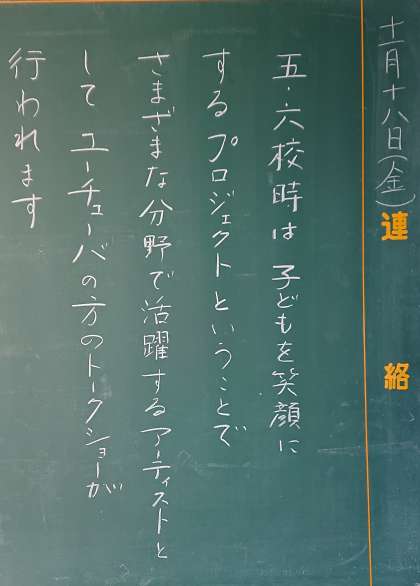 十一月十八日(金)
連絡
五・六校時は子どもを笑顔に
するプロジェクトということで
さまざまな分野で活躍するアーティストと
してユーチューバの方のトークショーが
行われます